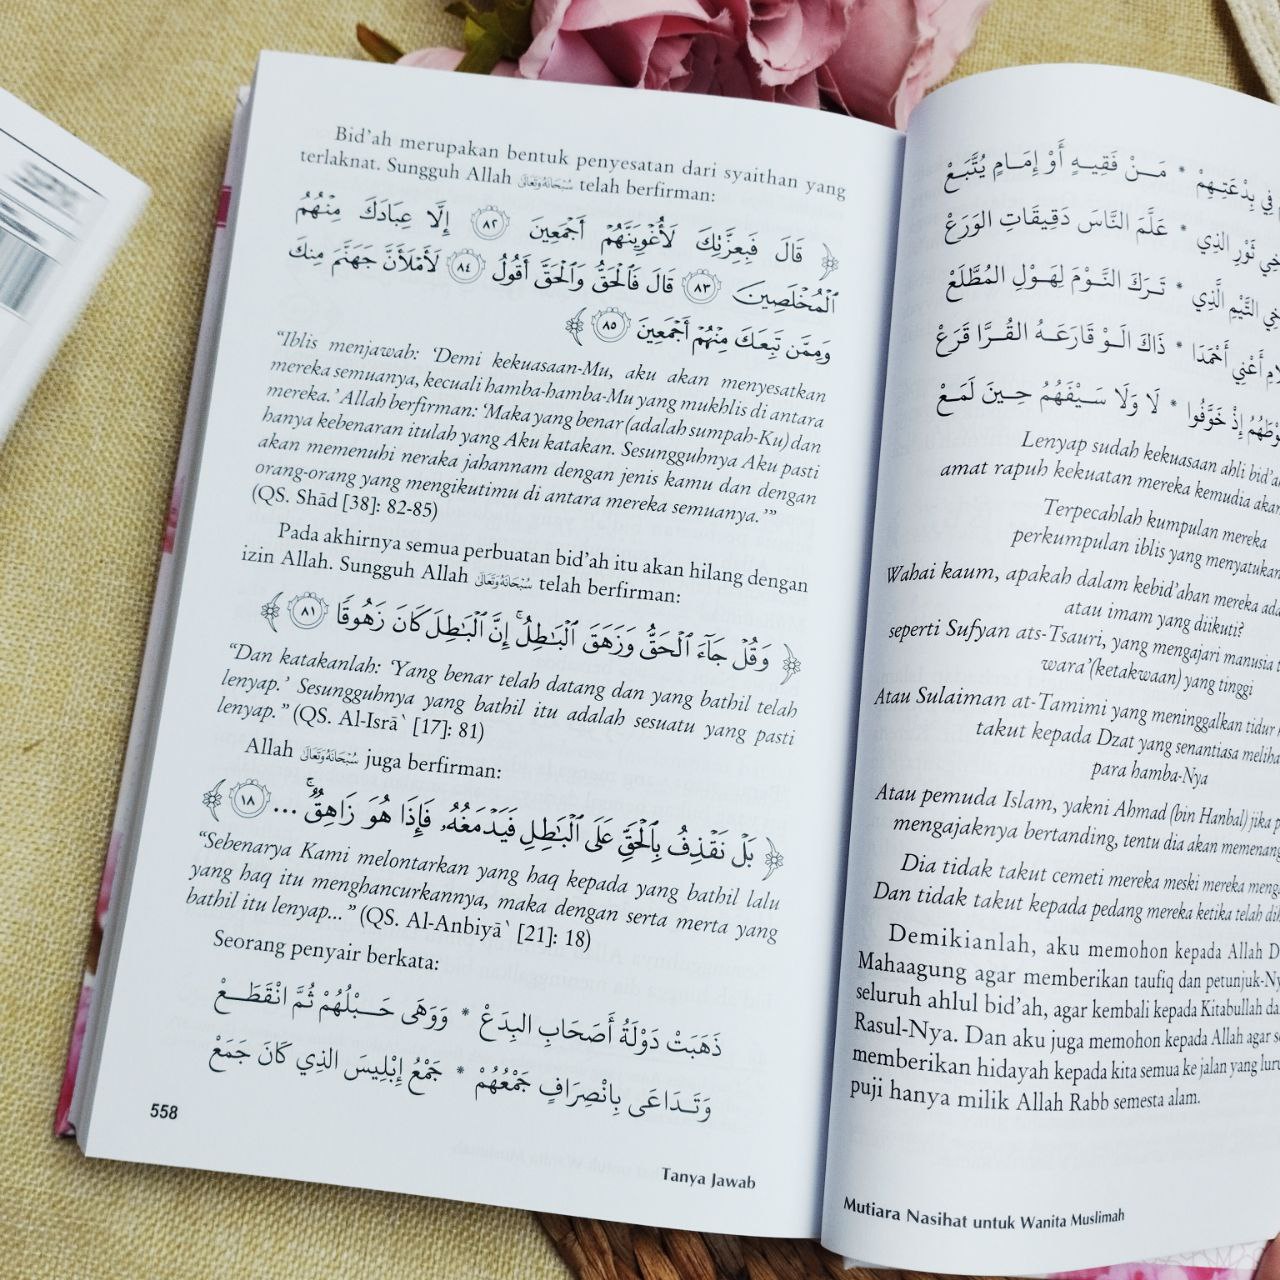 Bid'ah merupakan bentuk penyesatan dari syaithan yang
terlaknat. Sungguh Allah سُبْحَانَهُ وَتَعَالَى telah berfirman:
﴿ قَالَ فَبِعِزَّتِكَ لَأُغْوِيَنَّهُمْ أَجْمَعِينَ ٨٢ إِلَّا عِبَادَكَ مِنْهُمُ
ٱلْمُخْلَصِينَ ٨٣ قَالَ فَٱلْحَقُّ وَٱلْحَقَّ أَقُولُ ٨٤ لَأَمْلَأَنَّ جَهَنَّمَ مِنكَ
وَمِمَّن تَبِعَكَ مِنْهُمْ أَجْمَعِينَ ٨٥ ﴾
"Iblis menjawab: 'Demi kekuasaan-Mu, aku akan menyesatkan
mereka semuanya, kecuali hamba-hamba-Mu yang mukhlis di antara
mereka.' Allah berfirman: 'Maka yang benar (adalah sumpah-Ku) dan
hanya kebenaran itulah yang Aku katakan. Sesungguhnya Aku pasti
akan memenuhi neraka jahannam dengan jenis kamu dan dengan
orang-orang yang mengikutimu di antara mereka semuanya.'"
(QS. Shād [38]: 82-85)
Pada akhirnya semua perbuatan bid'ah itu akan hilang dengan
izin Allah. Sungguh Allah سُبْحَانَهُ وَتَعَالَى telah berfirman:
﴿ وَقُلْ جَآءَ ٱلْحَقُّ وَزَهَقَ ٱلْبَٰطِلُ ۚ إِنَّ ٱلْبَٰطِلَ كَانَ زَهُوقًا ٨١ ﴾
"Dan katakanlah: 'Yang benar telah datang dan yang bathil telah
lenyap.' Sesungguhnya yang bathil itu adalah sesuatu yang pasti
lenyap." (QS. Al-Isrā` [17]: 81)
Allah سُبْحَانَهُ وَتَعَالَى juga berfirman:
﴿ بَلْ نَقْذِفُ بِٱلْحَقِّ عَلَى ٱلْبَٰطِلِ فَيَدْمَغُهُۥ فَإِذَا هُوَ زَاهِقٌ ۚ ... ١٨ ﴾
"Sebenarya Kami melontarkan yang haq kepada yang bathil lalu
yang haq itu menghancurkannya, maka dengan serta merta yang
bathil itu lenyap..." (QS. Al-Anbiyā` [21]: 18)
Seorang penyair berkata:
ذَهَبَتْ دَوْلَةُ أَصْحَابِ البِدَعْ * وَوَهَى حَبْلُهُمْ ثُمَّ انْقَطَعْ
وَتَدَاعَى بِانْصِرَافِ جَمْعُهُمْ * جَمْعُ إِبْلِيسَ الذِي كَانَ جَمَعْ
558
Tanya Jawab
فِي بِدْعَتِهِمْ * مَنْ فَقِيهٍ أَوْ إِمَامٍ يُتَّبَعْ
ثَوْرِ الذِي * عَلَّمَ النَّاسَ دَقِيقَاتِ الوَرَعْ
التَّيْمِ الَّذِي * تَرَكَ النَّوْمَ لِهَوْلِ المُطَّلَعْ
أَعْنِي أَحْمَدَا * ذَاكَ الَوْ قَارَعَهُ القُرَّا قَرَعْ
إِذْ خَوَّفُوا * لَا وَلَا سَيْفَهُمُ حِينَ لَمَعْ
Lenyap sudah kekuasaan ahli
amat rapuh kekuatan mereka kemudia
Terpecahlah kumpulan mereka
perkumpulan iblis yang
Wahai kaum, apakah dalam kebid'ahan mereka
atau imam yang diikuti?
seperti Sufyan ats-Tsauri, yang mengajari manusia
wara' (ketakwaan) yang tinggi
Atau Sulaiman at-Tamimi yang meninggalkan tidur
takut kepada Dzat yang senantiasa
para hamba-Nya
Atau pemuda Islam, yakni Ahmad (bin Hanbal) jika
mengajaknya bertanding, tentu dia akan
Dia tidak takut cemeti mereka meski mereka
Dan tidak takut kepada pedang mereka ketika telah
Demikianlah, aku memohon kepada Allah
Mahaagung agar memberikan taufiq dan
seluruh ahlul bid'ah, agar kembali kepada Kitabullah
Rasul-Nya. Dan aku juga memohon kepada Allah agar
memberikan hidayah kepada kita semua ke jalan yang
puji hanya milik Allah Rabb semesta alam.
Mutiara Nasihat untuk Wanita Muslimah